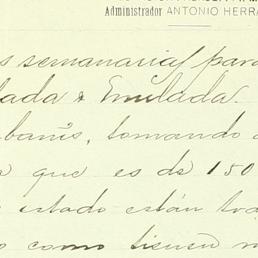 Administrador ANTONIO HERRA
s semanarias para
lada o Emilada.
banis, tomando
que es de 150
estado están to
como tienen